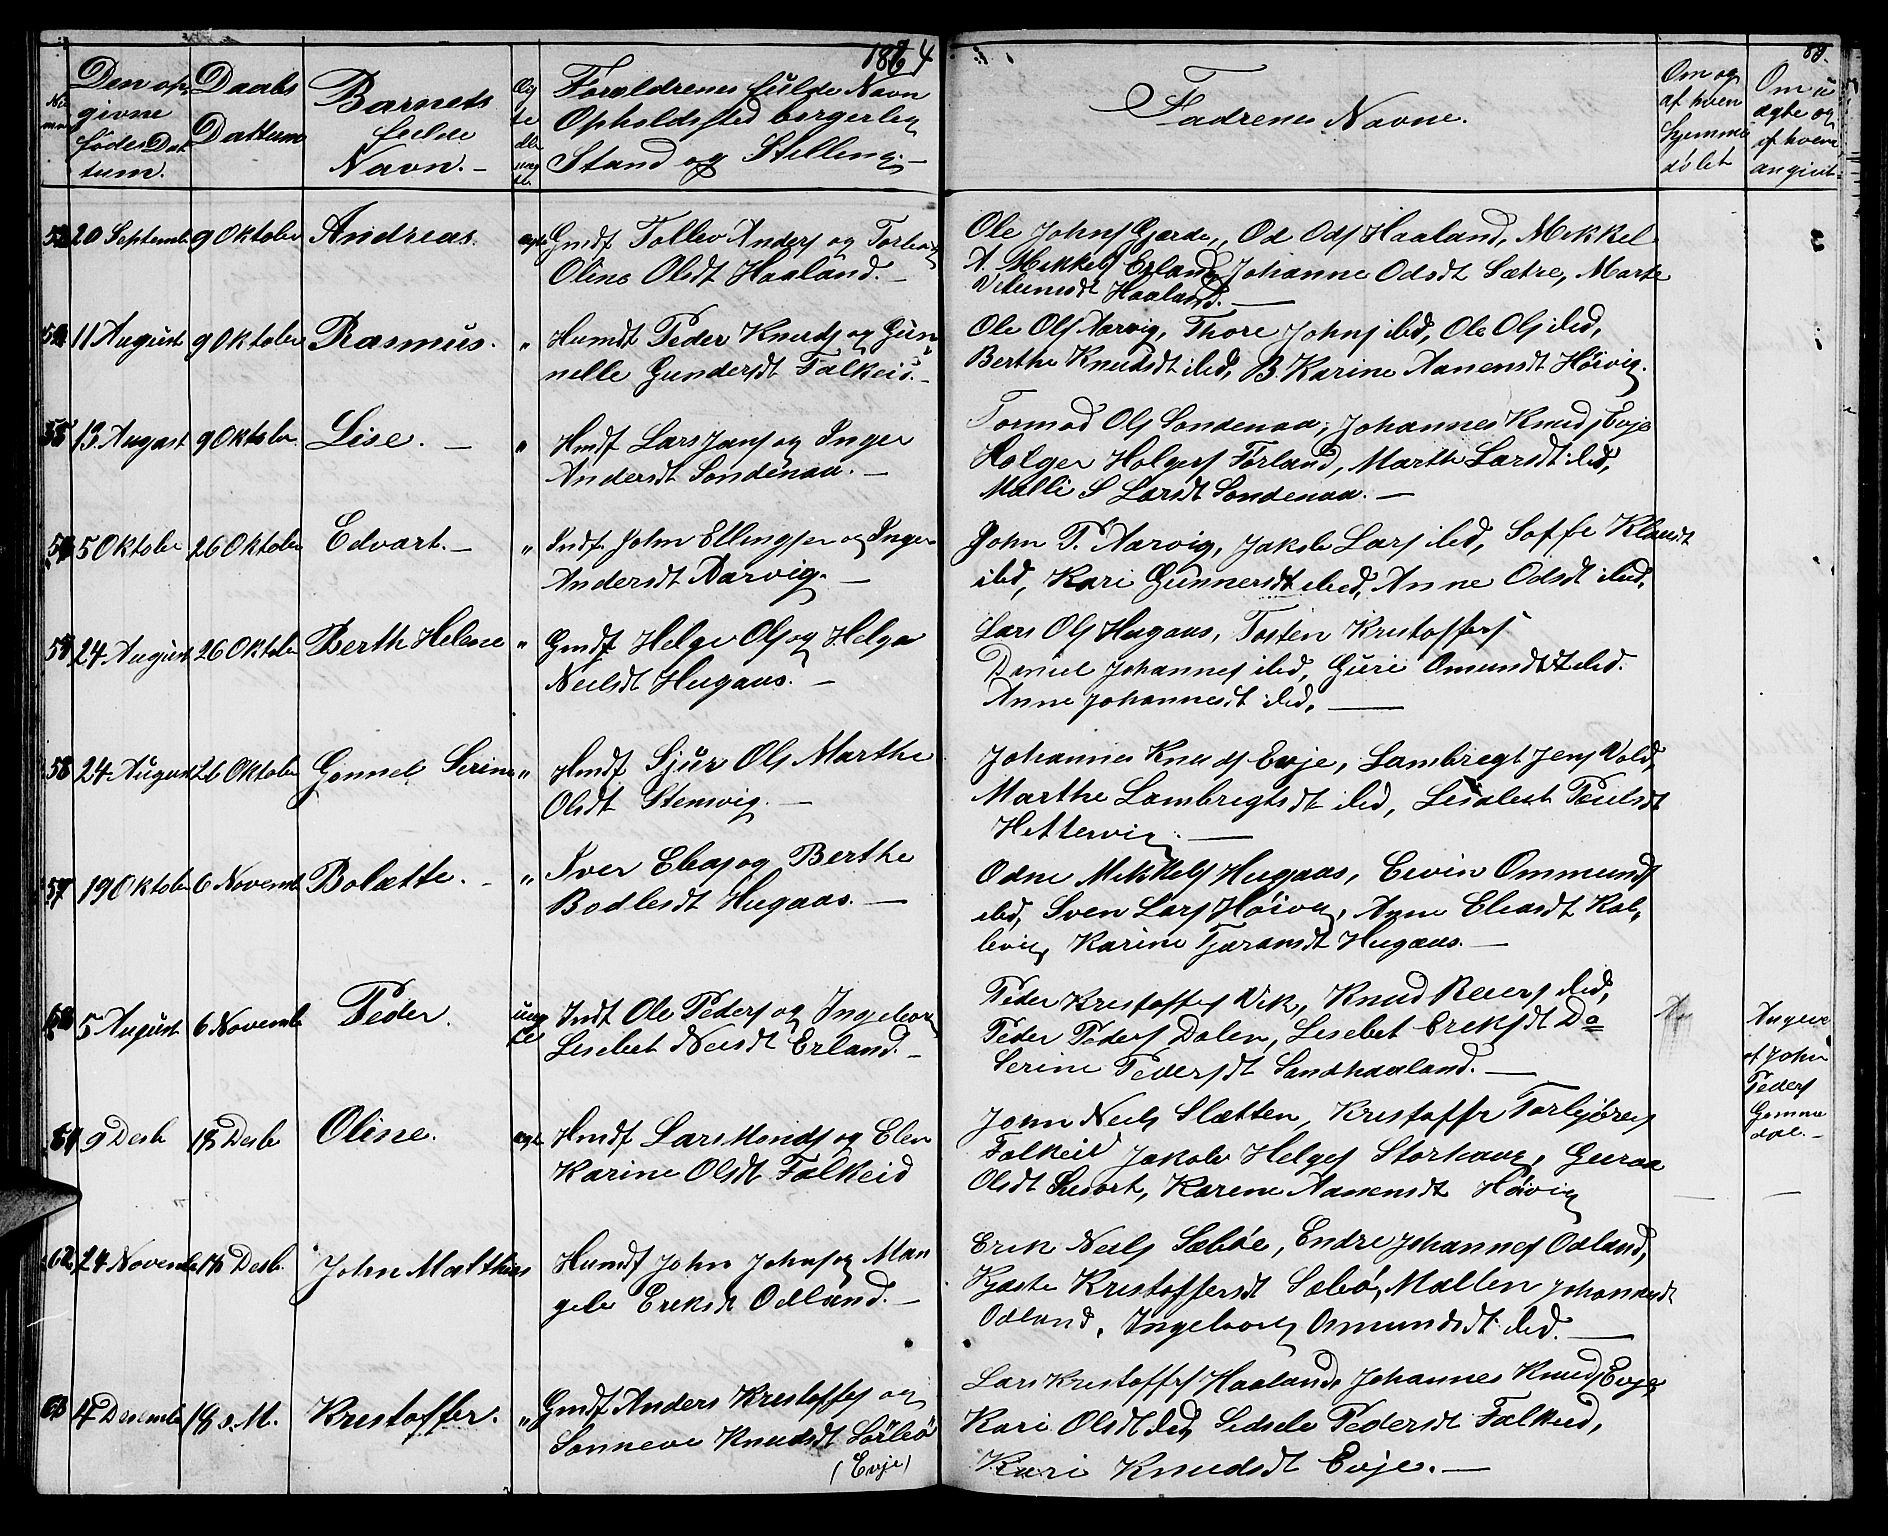 1864
88.
Den op
givne
Fødes Dat
tum.
Daabs
Dattum
Barnets
fulde
Navn. -
Æg
te
eller
uæg
te.
Forældrenes fulde Navn
Opholdsted borgerlig
Stand og Stilling. -
Fadrenes Navne.
Om og
af hven
hjemme
døbt
Om u
ægte og
af hvem
angivet
20 Septemb 9 Oktober Andreas. ægte Gmdf Tollev Anders og
Oline Olsdt Haaland. -
Ole Johns Gjerde, Od Ods Haaland, Mikkel
A. Mikkels Erland, Johanne Odsdt Sætre, Marte
Haaland. -
11 August 9 Oktober Rasmus. " Husmdf Peder Knuds og Gun
nelle Gundersdt Falkeid. -
Ole Ols Aarvig, Thore Johns ibd, Ole Ols ibd,
Berthe Knudsdt ibd, B. Karine Aanensdt Høivig.
13 August 9 Oktober Lise. - " Hmdf Lars Jans og Inger
Andersdt Søndenaa. -
Tormod Ols Søndenaa, Johannes Knuds Evje
Holger Holgers Førland, Marthe Larsdt ibd,
Malli S Larsdt Søndenaa. -
5 Oktober 26 Oktober Edvart. - " Indf. John Ellingsen og Inger
Andersdt Aarvig. -
John P. Aarvig, Jakob Lars ibd, Soffi
ibd, Kari Gunnersdt ibid, Anne Odsdt ibid.
24 August 26 Oktober Berth Helene " Gmdf Helge Ols og Helga
Neilsdt Hugaas. -
Lars Ols Hugaas, Tosten Kristoffers
Daniel Johannes ibd, Guri Omundsdt ibd.
Anne Johannesdt ibd. -
58 24 August 26 Oktober Gønnel Serine " Hmdf Sjur Ols Marthe
Olsdt Stemvig. -
Johannes Knuds Evje, Lambregt Jens Vold,
Marthe Lambregtsdt ibd, Lisabet Poulsdt
Hettervig. -
59 19 Oktober 6 Novemb Bolætte. - " Iver Elias og Berthe
Bodlesdt Hugaas. -
Odne Mikkels Hugaas, Eivin Ommunds
ibd, Sven Lars Høivig, Anne Eliasdt Kal,
levig, Karine Tjaransdt Hugaas. -
5 August 6 Novemb Peder. uæg
te Indf Ole Peders og Ingebor
Lisebet Neisdt Erland. -
Peder Kristoffers Vik, Knud Reiers ibd,
Peder Peders Dalen, Lisebet Eriksdt Do
Serine Pedersdt Sandhaaland. -
Angivet
af John
Peders
Gomme
dal. -
9 Desb 18 Desb Oline. ægte Hmdf Lars Monds og Elen
Karine Olsdt Falkeid
John Neils Slætten, Kristoffr Torbjørns
Falkeid Jakob Helges Storhaug, Guroa
Olsdt Susort, Karine Aanensdt Høivig
62 24 Novemb 18 Desb. John Matthias Husmdf John Johns og Man
gele Eriksdt Odland. -
Erik Neils Sæbøe, Endre Johannes Odland,
Kjøste Kristoffersdt Sæbø, Mallen Johannesdt
Odland, Ingeborg Omundsdt ibd. -
63 4 Desembr 18 s. M. Kristoffer. " Gmdf Anders Kristoffes og
Sønneve Knudsdt Sørbø
(Evje)
Lars Kristoffers Haaland, Johannes Knuds Evje
Kari Olsdt ibd, Sidsele Pedersdt Falkeid,
Kari Knudsdt Evje. -